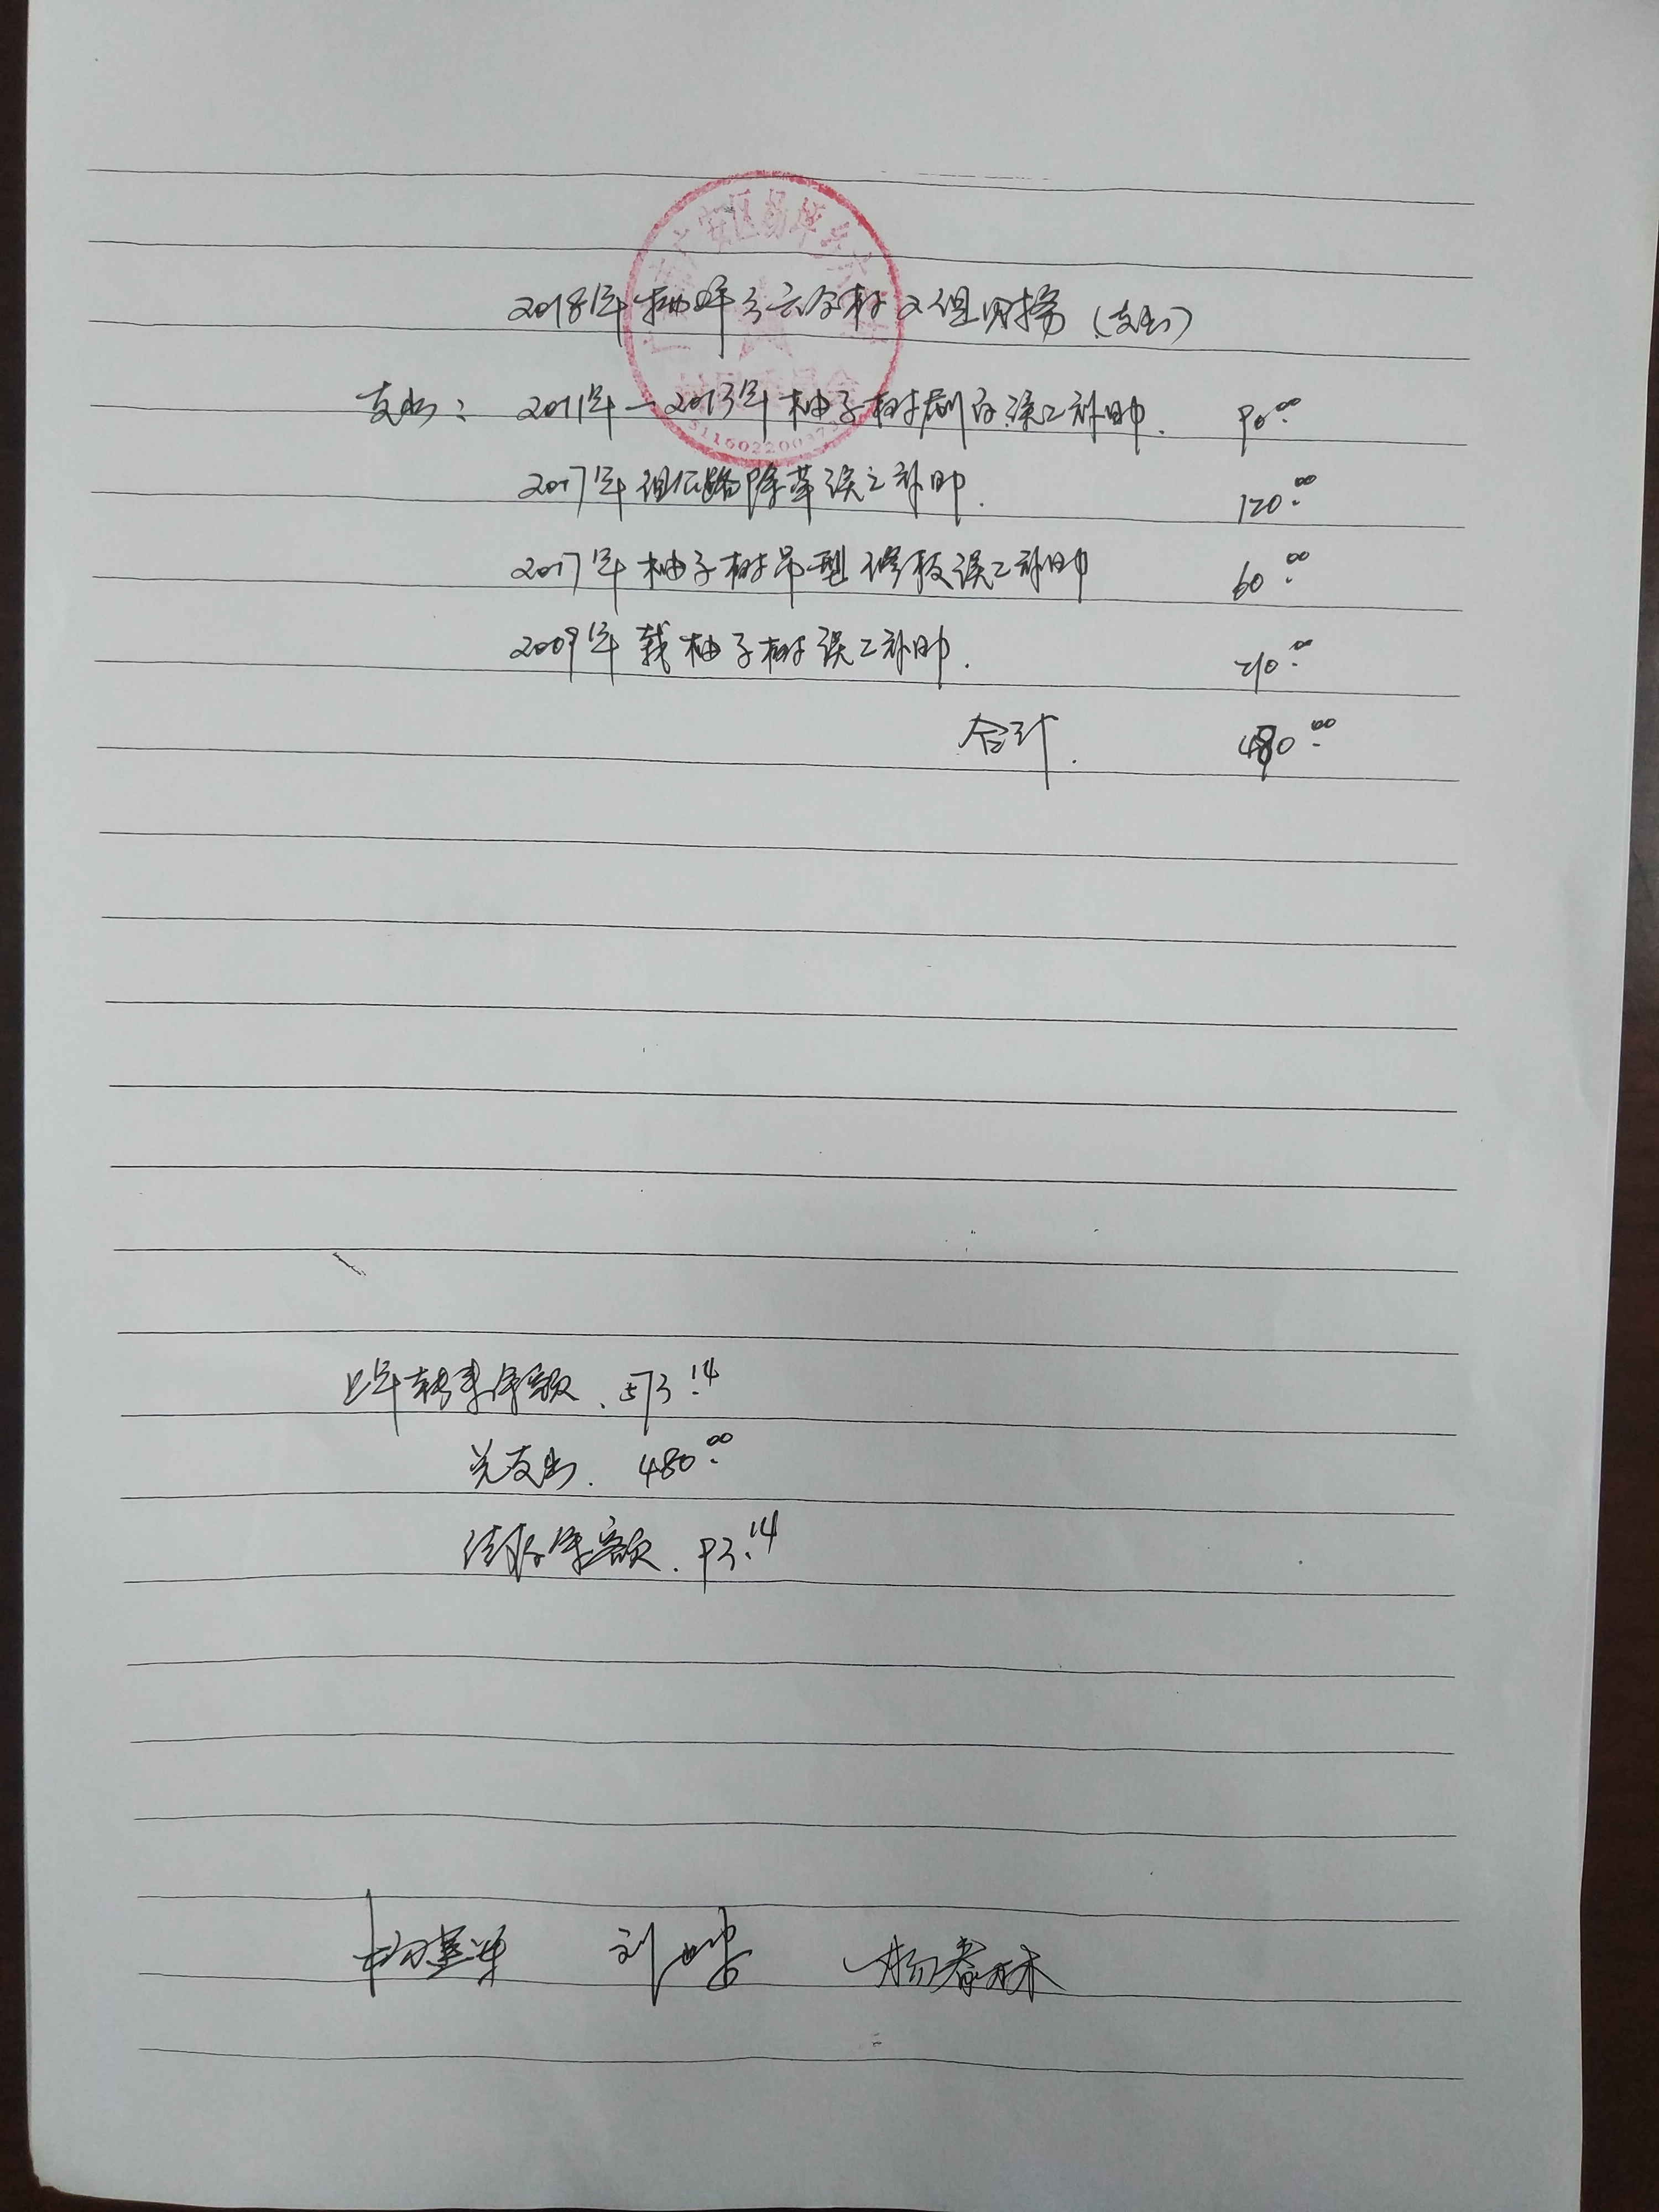 2018年杨坪乡云谷村2组财务(支出)
支出: 2011年-2013年柚子树刷白误工补助. 90.00
2017年组公路除草误工补助. 120.00
2017年柚子树吊型修枝误工补助 60.00
2009年载柚子树误工补助. 210.00
合计. 480.00
上年转来余额. 573.14
总支出. 480.00
结存余额. 93.14
杨春林